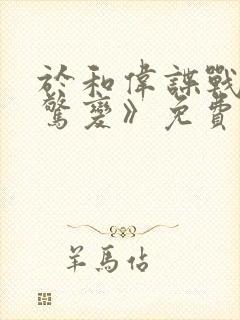 於和偉諜戰
驚變》免費
羊馬佔